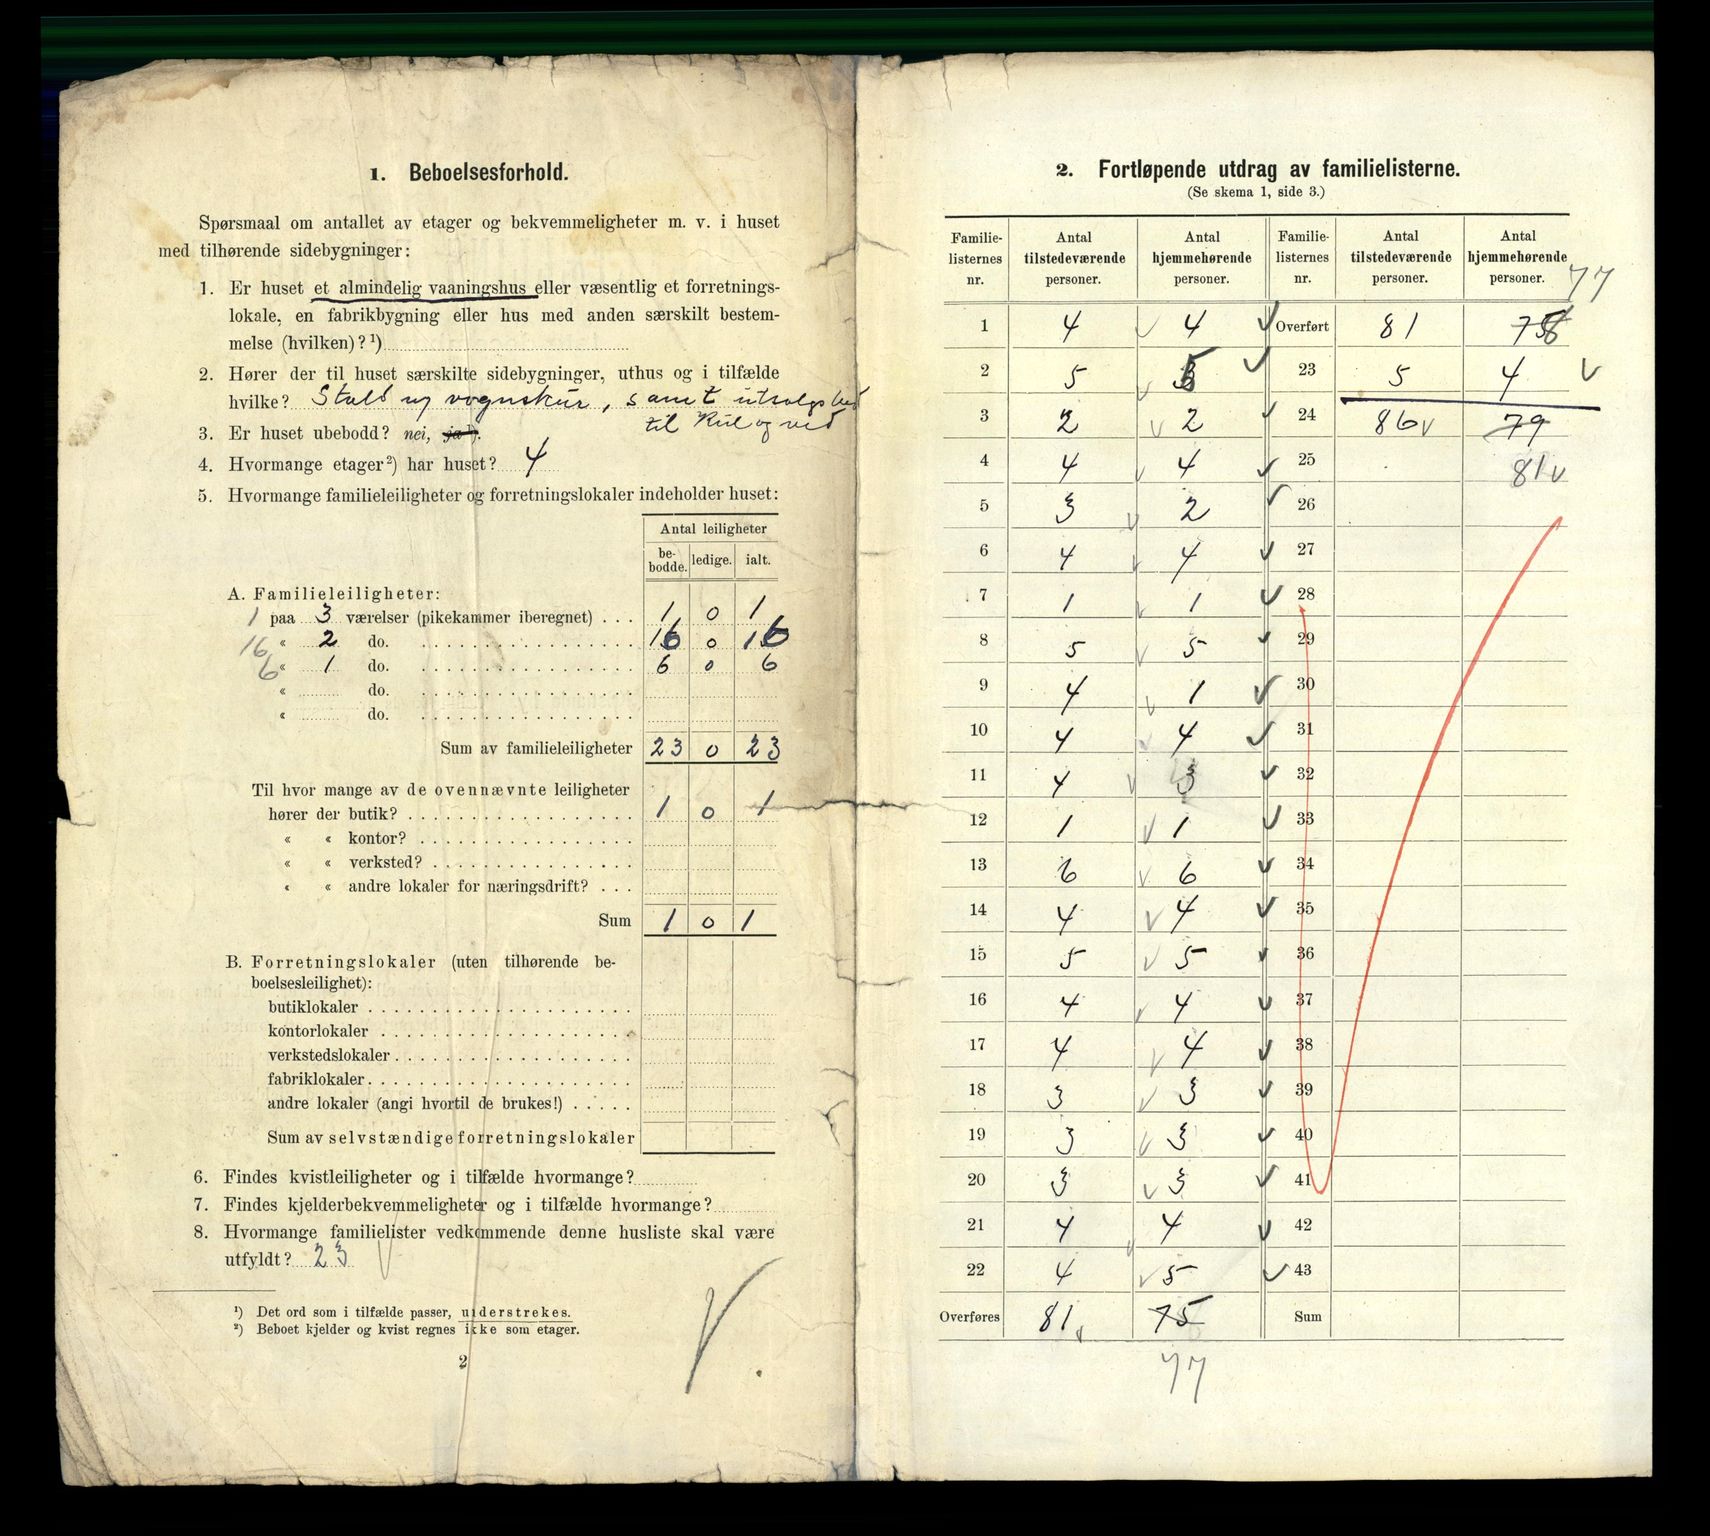 1. Beboelsesforhold.
Spørsmaal om antallet av etager og bekvemmeligheter m. v. i huset
med tilhørende sidebygninger:
1. Er huset et almindelig vaaningshus eller væsentlig et forretnings-
lokale, en fabrikbygning eller hus med anden særskilt bestem-
melse (hvilken)? ¹)
2. Hører der til huset særskilte sidebygninger, uthus og i tilfælde
hvilke? Stald og vognskur, samt utsalgsbod
til Kul og ved
3. Er huset ubebodd? nei, ja ¹).
4. Hvormange etager²) har huset? 4
5. Hvormange familieleiligheter og forretningslokaler indeholder huset:
Antal leiligheter
be-bodde. ledige. ialt.
A. Familieleiligheter:
1 paa 3 værelser (pikekammer iberegnet) . . . 1 0 1
16 « 2 do. 16 0 16
6 « 1 do. 6 0 6
« do.
« do.
Sum av familieleiligheter 23 0 23
Til hvor mange av de ovennævnte leiligheter
hører der butik? 1 0 1
« « kontor?
« « verksted?
« « andre lokaler for næringsdrift?
Sum 1 0 1
B. Forretningslokaler (uten tilhørende be-
boelsesleilighet):
butiklokaler
kontorlokaler
verkstedslokaler
fabriklokaler
andre lokaler (angi hvortil de brukes!)
Sum av selvstændige forretningslokaler
6. Findes kvistleiligheter og i tilfælde hvormange?
7. Findes kjelderbekvemmeligheter og i tilfælde hvormange?
8. Hvormange familielister vedkommende denne husliste skal være
utfyldt? 23
¹) Det ord som i tilfælde passer, understrekes.
²) Beboet kjelder og kvist regnes ikke som etager.
2
2. Fortløpende utdrag av familielisterne.
(Se skema 1, side 3.)
Familie-listernes nr. Antal tilstedeværende personer. Antal hjemmehørende personer. Familie-listernes nr. Antal tilstedeværende personer. Antal hjemmehørende personer.
77
1 4 4 Overført 81 75
2 5 5 23 5 4
3 2 2 24 86 79
4 4 4 25 81
5 3 2 26
6 4 4 27
7 1 1 28
8 5 5 29
9 4 1 30
10 4 4 31
11 4 3 32
12 1 1 33
13 6 6 34
14 4 4 35
15 5 5 36
16 4 4 37
17 4 4 38
18 3 3 39
19 3 3 40
20 3 3 41
21 4 4 42
22 4 5 43
Overføres 81 75 Sum
77